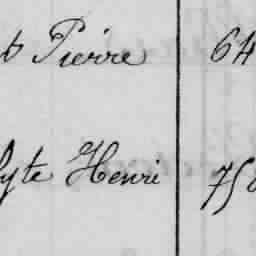 Pierre 64
lyte Henri 75